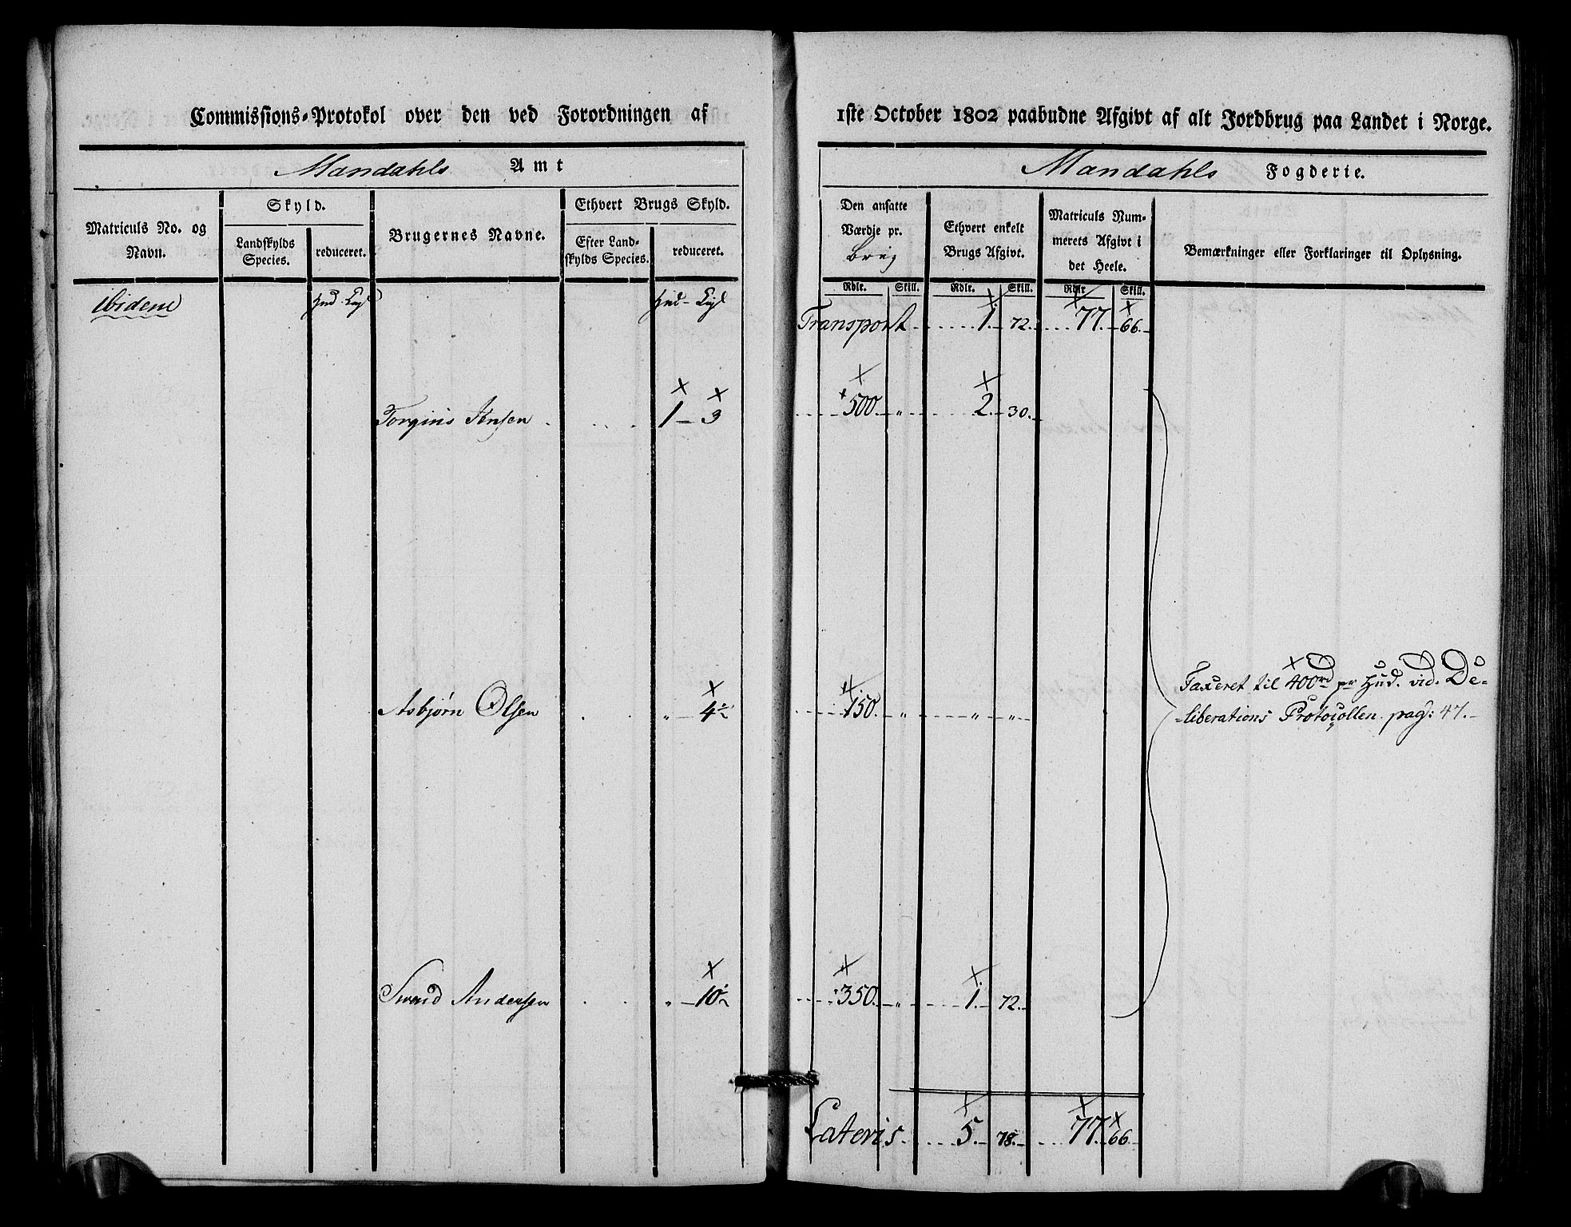 Commissions-Protokol over den ved Forordningen af
Mandahls Amt
Matriculs No. og Navn.
Skyld.
Landskylds Species.
reduceret.
Brugernes Navne.
Ethvert Brugs Skyld.
Efter Landskylds Species.
reduceret.
ibidem
Hud. Lagl
Hud - Lagl
Torgius Jensen 1 - 3
Asbjørn Olsen " - 4½
Svend Andersen " - 10½
1ste October 1802 paabudne Afgivt af alt Jordbrug paa Landet i Norge.
Mandahls Fogderie.
Den ansatte Værdje pr. brug
Ethvert enkelt Brugs Afgivt.
Matriculs Nummerets Afgivt i det Heele.
Bemærkninger eller Forklaringer til Oplysning.
Rdlr. Skill. Rdlr. Skill. Rdlr Skill.
Transport 1. 72. 77. 66.
500 " 2. 30.
150. " " "
350. " 1. 72.
Taxeret til 400rd pr Hud. vid. De-
liberations Protocollen pag: 47.
Lateris 5. 78. 77. 66.